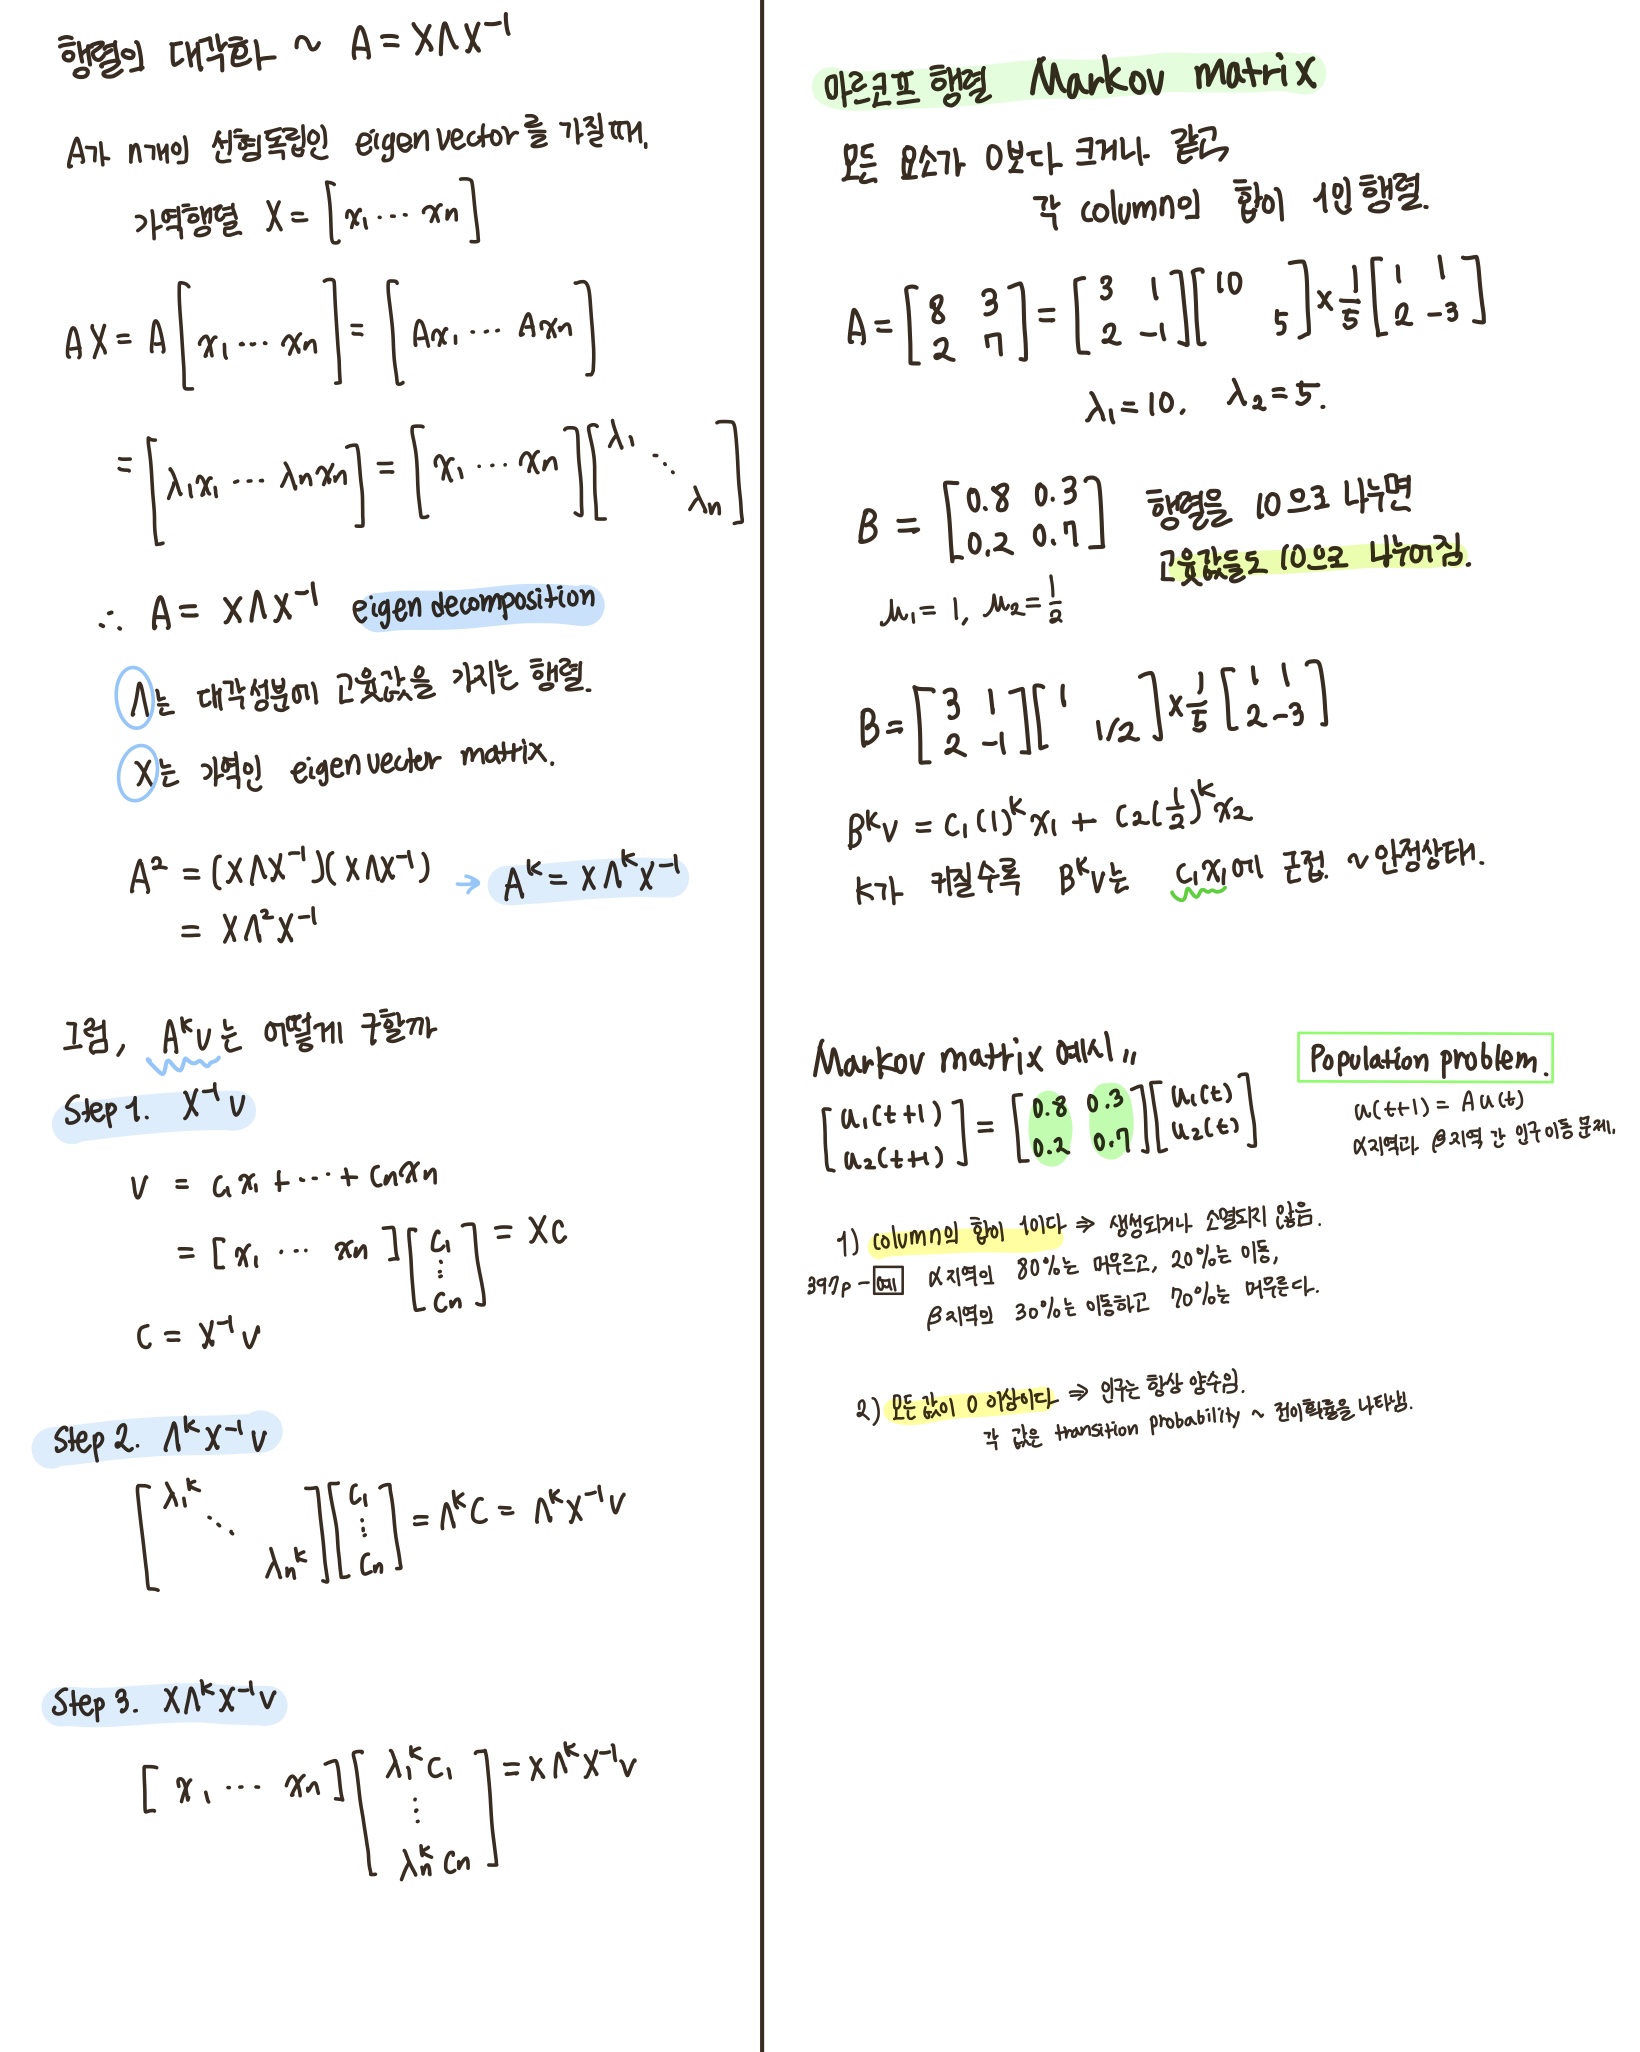 행렬의 대각화 ~ A = XΛX⁻¹
A가 n개의 선형독립인 eigen vector를 가질때,
가역행렬 X = [x₁ ··· xn]
AX = A [x₁ ··· xn] = [Ax₁ ··· Axn]
= [λ₁x₁ ··· λnxn] = [x₁ ··· xn] [λ₁ ⋱ λn]
∴ A = XΛX⁻¹ eigen decomposition
Λ는 대각성분에 고윳값을 가지는 행렬.
X는 가역인 eigen vector matrix.
A² = (XΛX⁻¹)(XΛX⁻¹) → Aᵏ = XΛᵏX⁻¹
= XΛ²X⁻¹
그럼, Aᵏv는 어떻게 구할까
Step 1. X⁻¹v
v = c₁x₁ + ··· + cnxn
= [x₁ ··· xn] [c₁ ⋮ cn] = Xc
c = X⁻¹v
Step 2. ΛᵏX⁻¹v
[λ₁ᵏ ⋱ λnᵏ] [c₁ ⋮ cn] = Λᵏc = ΛᵏX⁻¹v
Step 3. XΛᵏX⁻¹v
[x₁ ··· xn] [λ₁ᵏc₁ ⋮ λnᵏcn] = XΛᵏX⁻¹v
마르코프 행렬 Markov matrix
모든 요소가 0보다 크거나 같고,
각 column의 합이 1인 행렬.
A = [8 3 / 2 7] = [3 1 / 2 -1] [10 / 5] × 1/5 [1 1 / 2 -3]
λ₁ = 10, λ₂ = 5.
B = [0.8 0.3 / 0.2 0.7] 행렬을 10으로 나누면
고윳값들도 10으로 나누어짐.
μ₁ = 1, μ₂ = 1/2
B = [3 1 / 2 -1] [1 / 1/2] × 1/5 [1 1 / 2 -3]
Bᵏv = c₁(1)ᵏx₁ + c₂(1/2)ᵏx₂
k가 커질수록 Bᵏv는 c₁x₁에 근접. ~안정상태.
Markov matrix 예시,,
Population problem.
[u₁(t+1) / u₂(t+1)] = [0.8 0.3 / 0.2 0.7] [u₁(t) / u₂(t)]
u(t+1) = A u(t)
α지역과 β지역 간 인구 이동 문제.
1) column의 합이 1이다 ⇒ 생성되거나 소멸되지 않음.
397p - 예 α지역의 80%는 머무르고, 20%는 이동,
β지역의 30%는 이동하고 70%는 머무른다.
2) 모든 값이 0 이상이다 ⇒ 인구는 항상 양수임.
각 값은 transition probability ~ 전이확률을 나타냄.